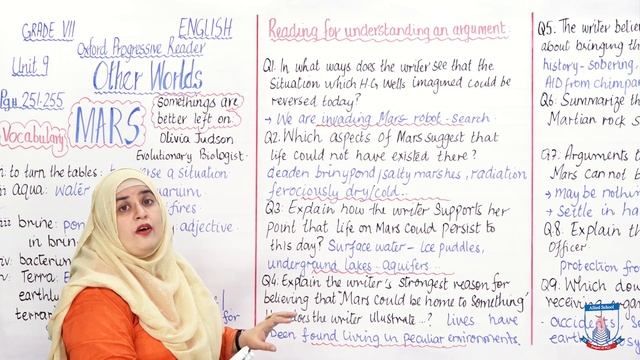 GRADE VII
ENGLISH
Oxford Progressive Reader
Unit 9
Other Worlds
Pg# 251-255
MARS
Something's are
better left on.
Olivia Judson
Evolutionary Biologist.
Vocabulary
to turn the tables: a situation
aqua: water
fires
brine: adjective.
in brin
iv: bacterium
v: Terra:
earthly
terra
for
Reading for understanding an argument.
Q1. In what ways does the writer see that the
situation which H.G. Wells imagined could be
reversed today?
→ We are invading Mars- robot - search
Q2. Which aspects of Mars suggest that
life could not have existed there?
deaden briny pond/salty marshes, radiation
ferociously dry/cold..
Q3. Explain how the writer supports her
point that life on Mars could persist to
this day? Surface water - ice puddles,
underground lakes - aquifers..
Q4. Explain the writer's strongest reason for
believing that 'Mars could be home to something'
does the writer illustrate..? lives have
been found living in peculiar environments.
Q5. The writer
about bringing th
history - sobering
AID from chimpan
Q6. Summarize th
Martian rock s
Q7. Arguments t
Mars can not b
→ may be nothin
→ settle in ha
Q8. Explain th
Officer.
protection fro
Q9. Which dou
receiving
Allied School